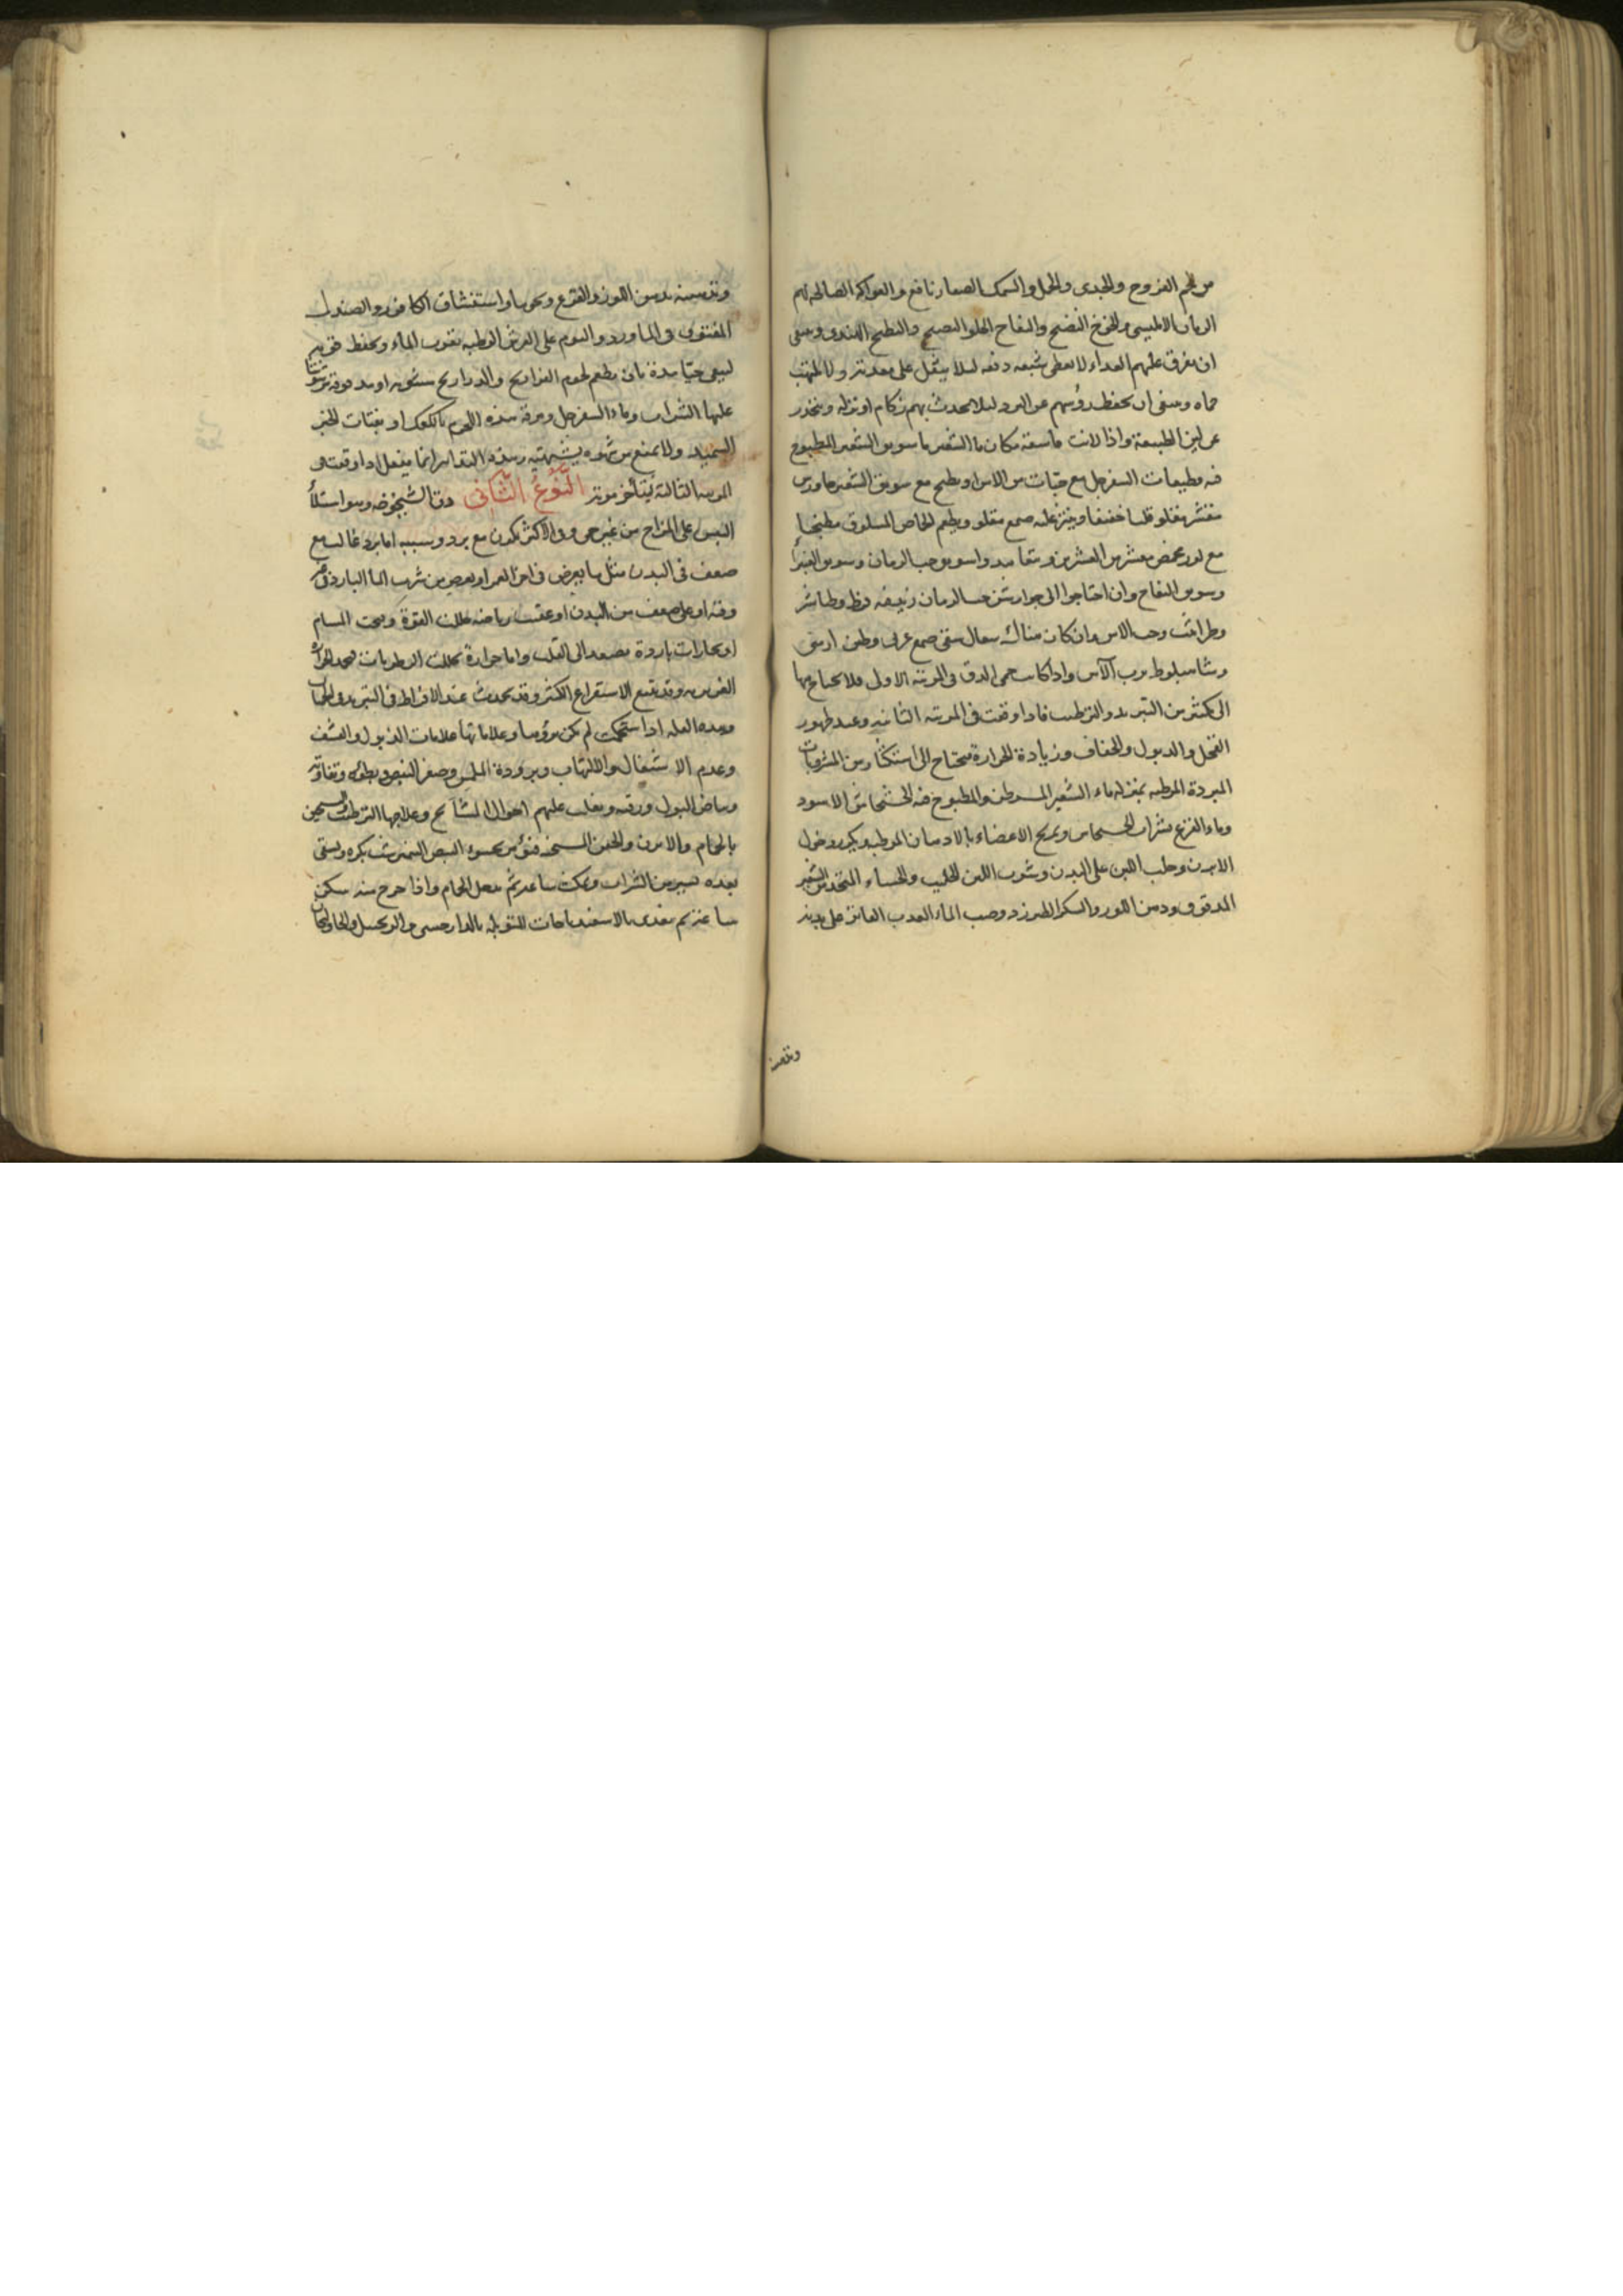 من لحم الفروج والجدى والحمل والسمك الصغار نافع والفواكه الصالحة لهم
الرمان الامليسى والخوخ النضيج والتفاح الحلو النضيج والبطيخ الهندى وينبغى
ان يفرق عليهم الغداء لا يعطى شبعه دفعه ليلا يثقل على معدته ولا تلتهب
حماه وينبغى ان يحفظ رؤسهم عن البرد ليلا يحدث بهم زكام او نزله ويحذر
عن لين الطبيعة واذا لانت فاسقه مكان ماء الشعير ماء سويق الشعير المطبوخ
فيه قطيعات السفرجل مع حبات من الاس او يطبخ مع سويق الشعير جاورس
مقشر مقلو قليا خفيفا وينثر عليه صمع مقلو ويطعم الحماض المسلوق مطبخا
مع وسويق حب الرمان وسويق الغبيرا
وسويق التفاح وان احتاجوا الى جوارشن حب الرمان وطباشير
وطراثيث وحب الاس وان كان هناك سعال سقى صمع عربى وطين ارمنى
وشاهبلوط ورب الآس واذا كانت حمى الدق فى المرتبه الاولى فلا يحتاج فيها
الى كثير من التبريد والترطيب فاذا وقعت فى المرتبه الثانيه وعند ظهور
القحل والذبول والجفاف وزيادة الحرارة فيحتاج الى استكثار من المشروبات
المبردة المرطبه بمنزله ماء الشعير المسرطن والمطبوخ فيه الخشخاش الاسود
وماء القرع بشراب الخشخاش وتمريخ الاعضاء بالادهان المرطبه وتكرير دخول
الابزن وحلب اللبن على البدن وشرب اللبن الحليب والحساء المتخذ من الشعير
المدقوق ودهن اللوز والسكر الطبرزد وصب الماء العذب الفاتر على بدنه
وتدهينه
وتدهينه بدهن اللوز والقرع ونحوها واستنشاق الكافور والصندل
المفتوق فى الماورد والنوم على الفرش الرطبه بقرب الماء وتحفظ قوتهم
ليبقى حيا مدة بان يطعم لحوم الفراريج والدراريج مشويه او مدقوقه مرشوشا
عليها الشراب وماء السفرجل ومرقة هذه اللحوم بالكعك او بفتات الخبز
السميد ولا يمنع من شهوه يشتهيه وهذه التدابير انما يفعل اذا وقعت فى
المرتبه الثالثة ليتأخر موته النوع الثانى دق الشيخوخه وهو استيلاء
اليبس على المزاج من غير حمى وفى الاكثر يكون مع برد وسببه اما برد غالب مع
ضعف فى البدن مثل ما يعرض فى اخر العمر او يعرض من شرب الماء البارد فى غير
وقته او على ضعف من البدن او عقيب رياضه حللت القوة وفتحت المسام
او بخارات باردة تصعد الى القلب واما حرارة تحللت الرطوبات فتخمد الحرارة
الغريزيه وقد يتبع الاستفراغ الكثير وقد يحدث عند الافراط فى التبريد فى الحميات
وهذه العله اذا استحكمت لم يكن برؤها وعلاماتها علامات الذبول والقشف
وعدم الاشتعال والالتهاب وبرودة الملمس وصغر النبض وبطؤه وتفاوته
وبياض البول ورقته ويغلب عليهم احوال المشايخ وعلاجها الترطيب والتسخين
بالحمام والابزن والحقن المسخنه البيض النيمرشت بكره ويسقى
بعده يسير من الشراب ويمكث ساعه ثم يدخل الحمام واذا خرج منه سكن
ساعه ثم يغذى بالاسفيدباجات المتوبله بالدارصينى والزنجبيل والخولنجان